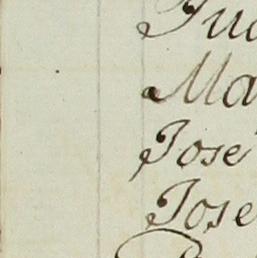 Jua
Ma
Jose
Jose